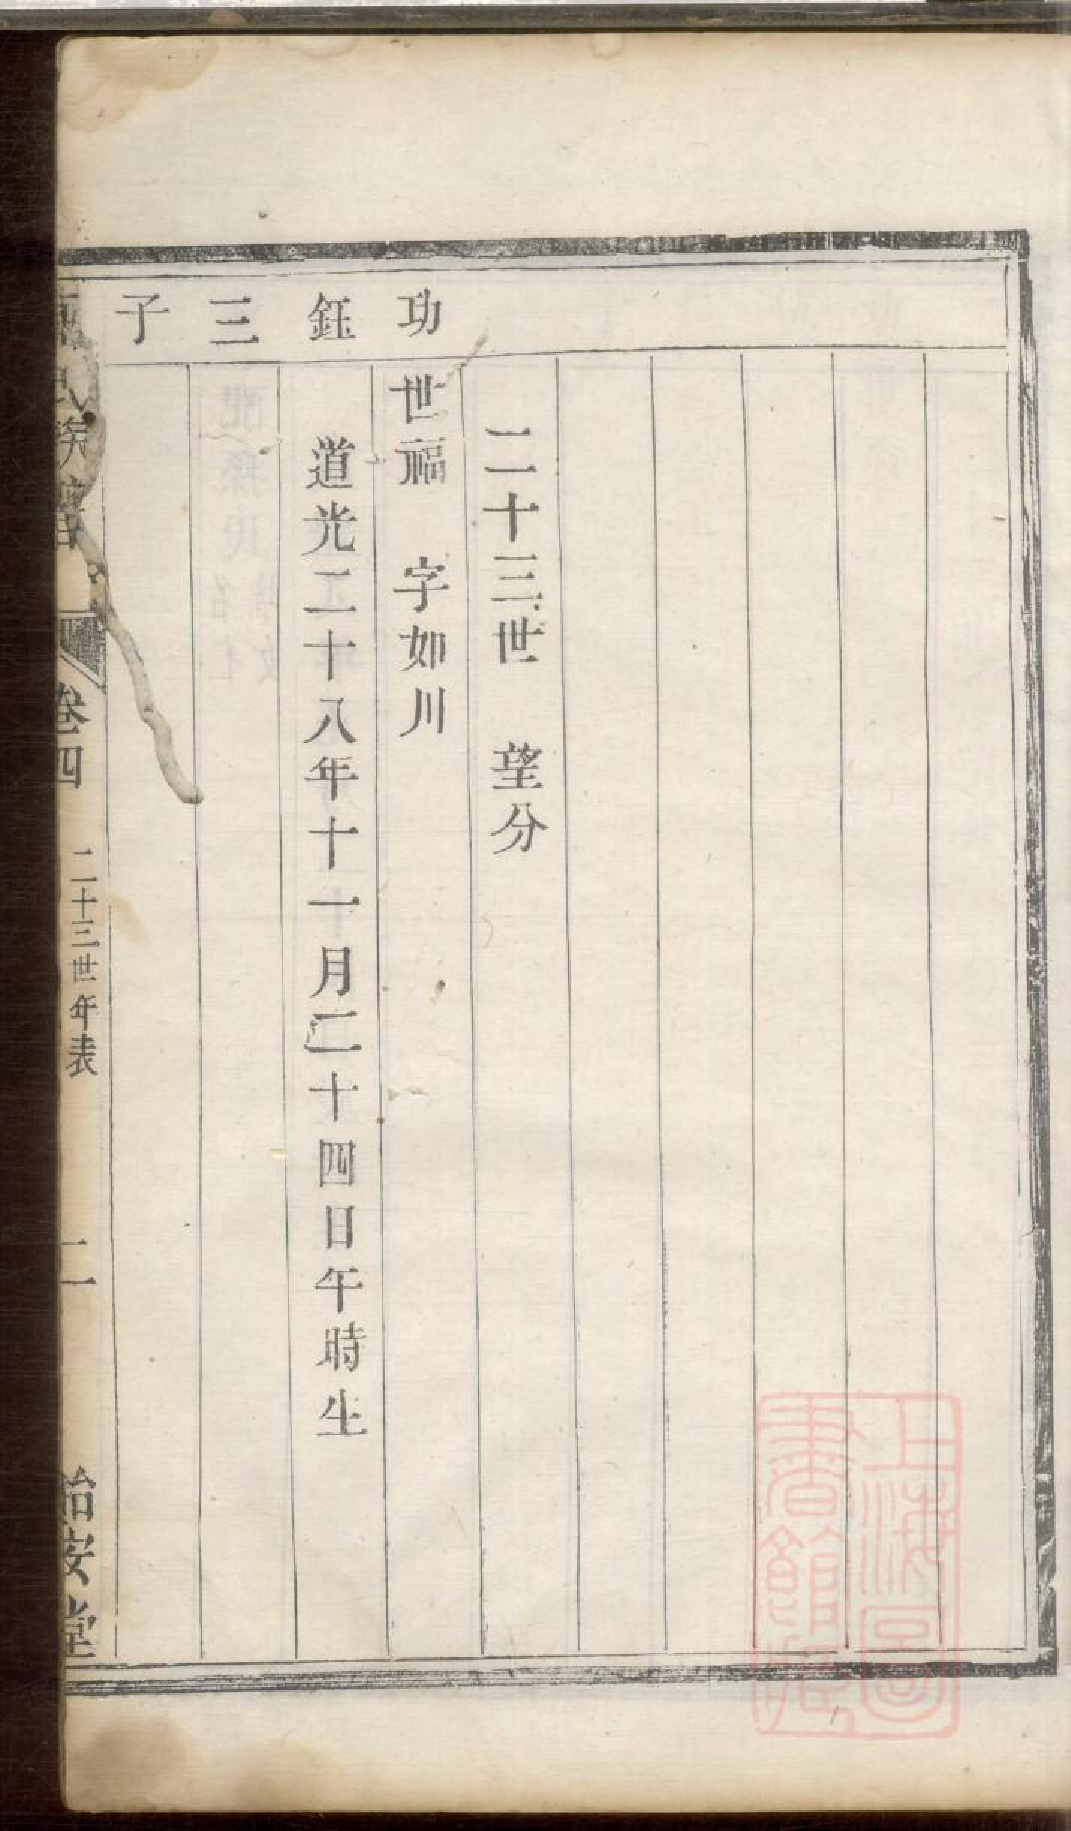 二十三世 望分
功鈺三子
世福 字如川
道光二十八年十一月二十四日午時生
氏族譜
卷四
二十三世年表
二
治安堂
上海圖書館藏